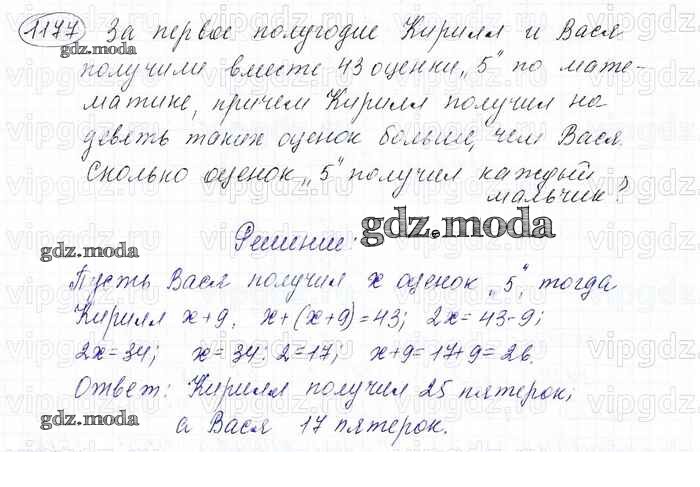 1177 За первое полугодие Кирилл и Вася
получили вместе 43 оценки „5" по мате-
матике, причем Кирилл получил на
девять таких оценок больше, чем Вася.
Сколько оценок „5" получил каждый
мальчик?
Решение:
Пусть Вася получил x оценок „5", тогда
Кирилл x+9. x+(x+9)=43; 2x=43-9;
2x=34; x=34:2=17; x+9=17+9=26.
Ответ: Кирилл получил 25 пятерок;
а Вася 17 пятерок.
gdz.moda
gdz.moda
gdz.moda
gdz.moda
gdz.moda
gdz.moda
vipgdz.ru